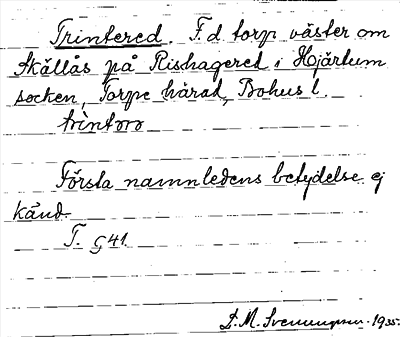 Trintered. F.d torp väster om
Skållås på Rishageret i Hjärtum
socken, Torpe härad, Bohus l.
Första namnledens betydelse ej
känd.
T. G41
D. M. Svenungsson 1935.